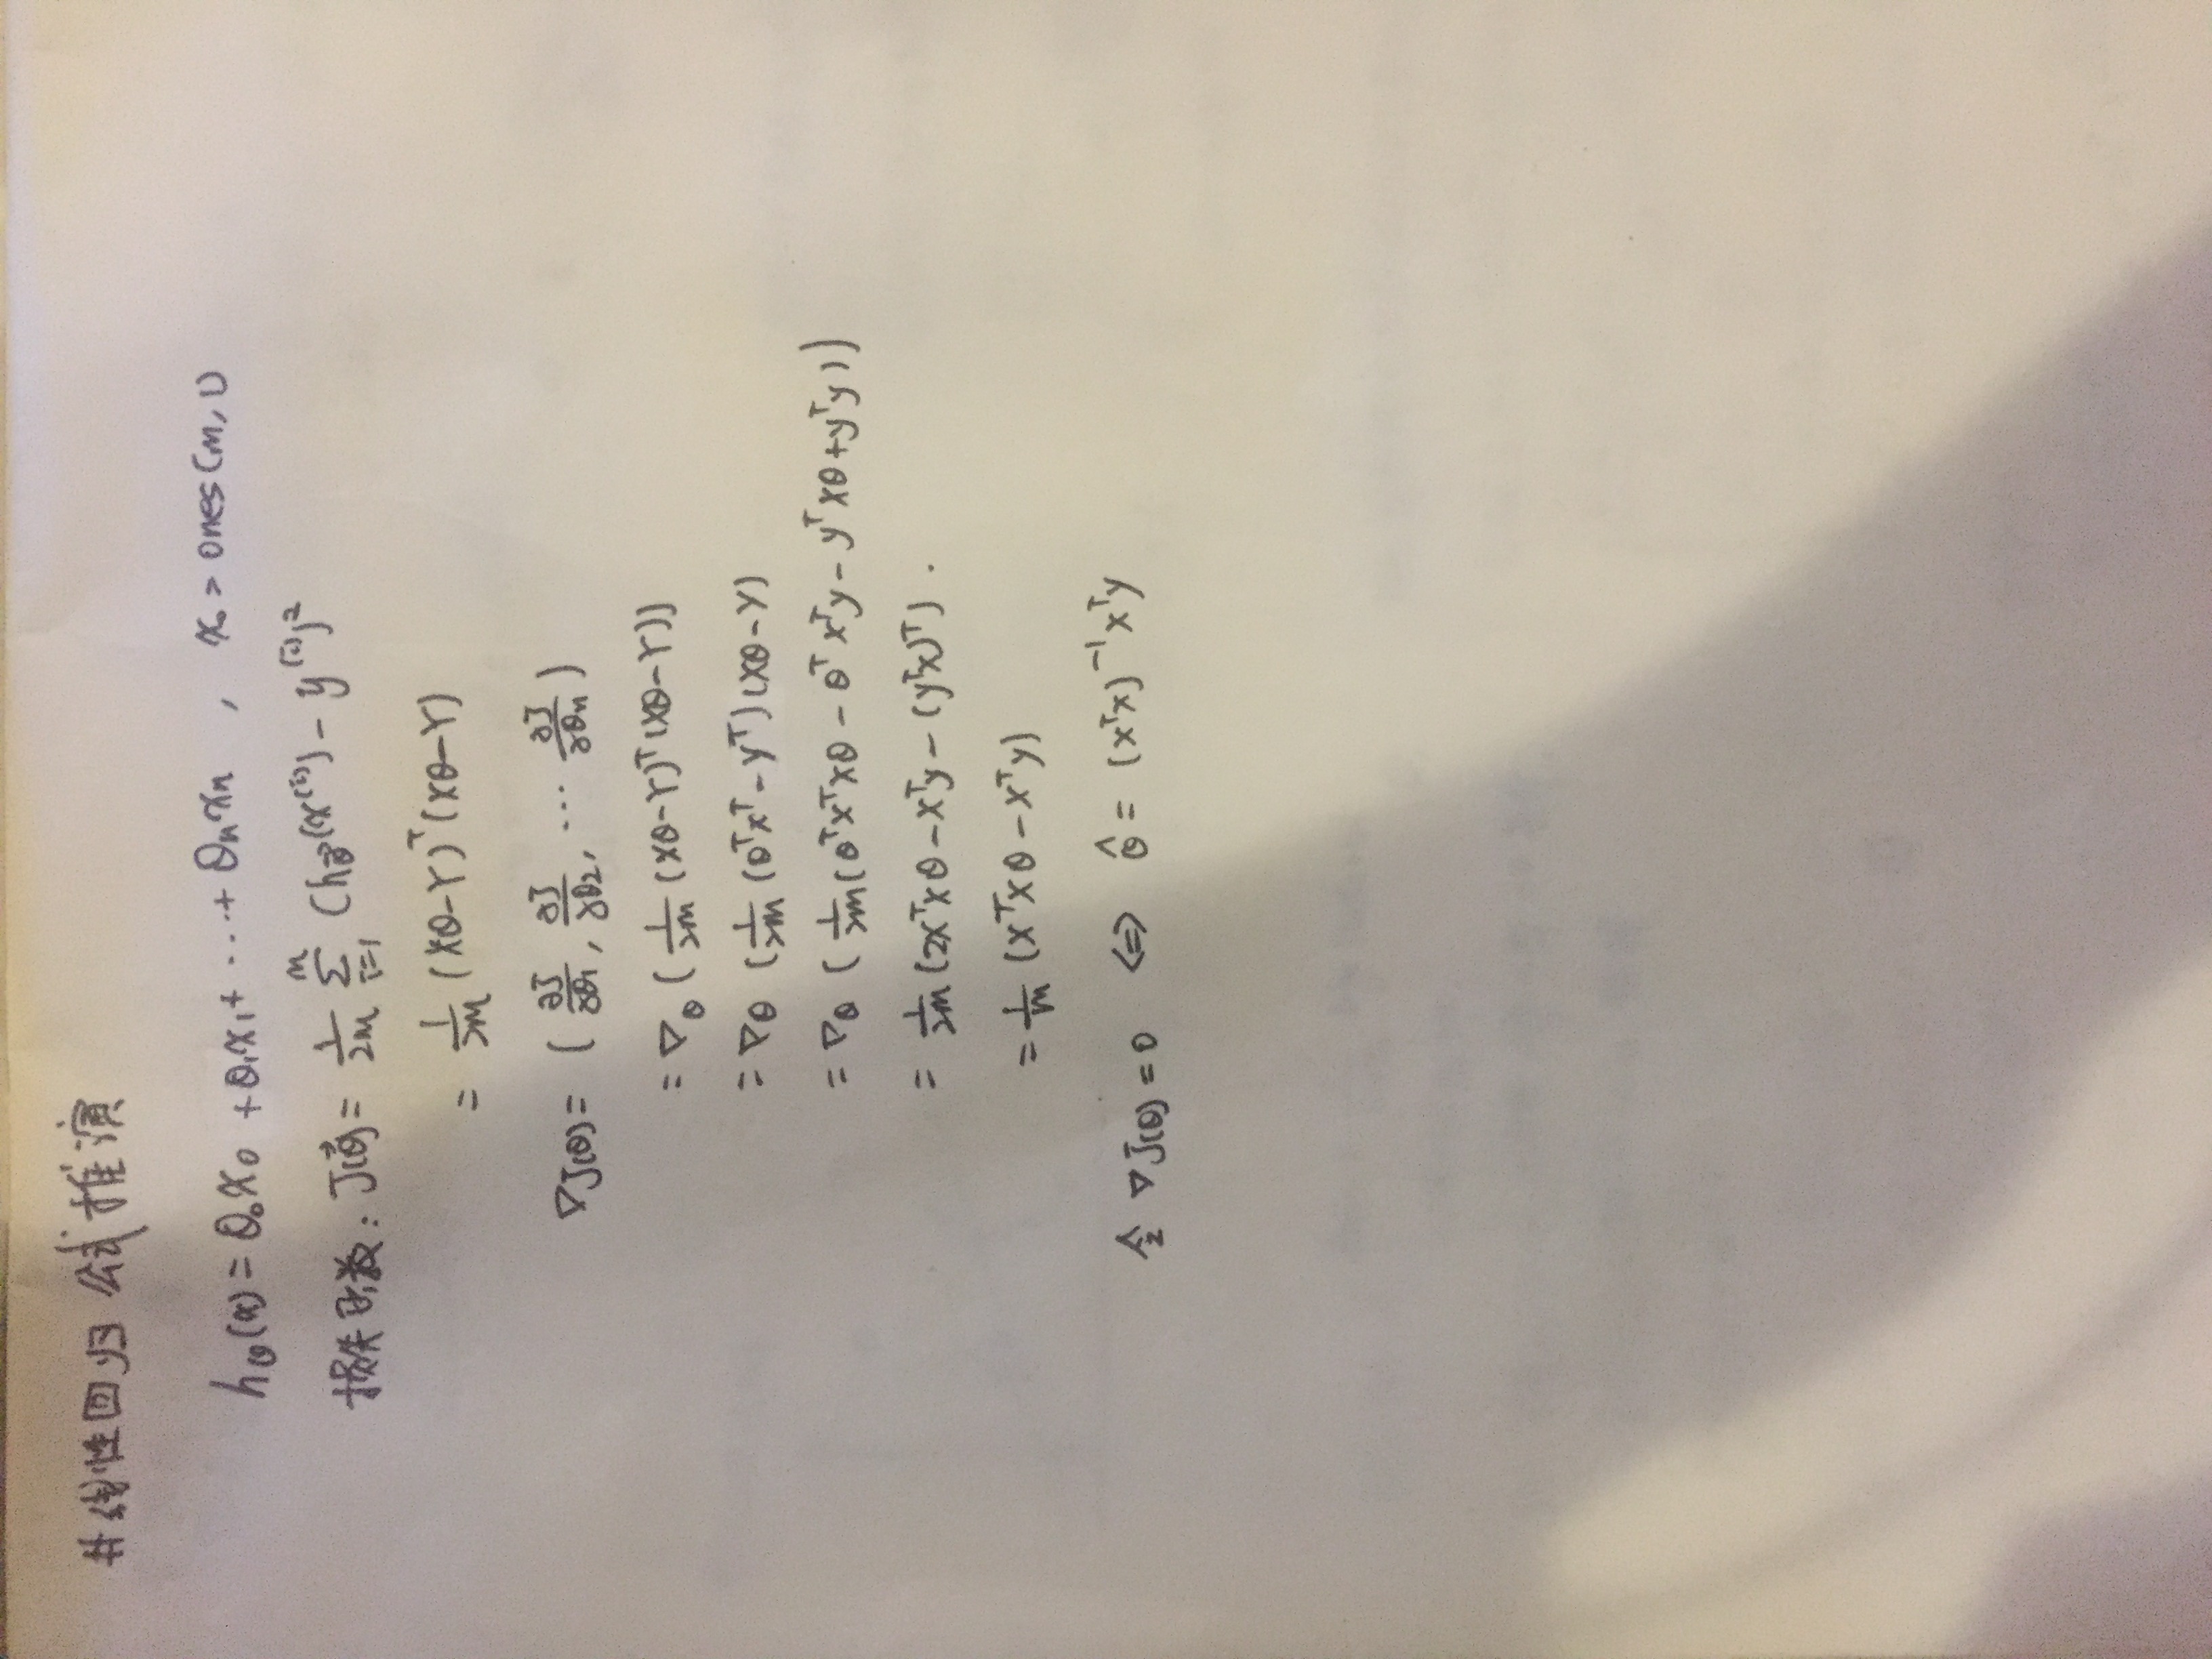 #线性回归 公式推演
hθ(x) = θ₀x₀ + θ₁x₁ + ⋯ + θₙxₙ , x₀ = ones(m, 1)
损失函数: J(θ⃗) = 1/2m ∑_{i=1}^{m} (h_θ⃗(x⁽ⁱ⁾) - y⁽ⁱ⁾)²
= 1/2m (Xθ-Y)ᵀ(Xθ-Y)
∇J(θ) = ( ∂J/∂θ₁, ∂J/∂θ₂, ⋯ ∂J/∂θₙ )
= ∇θ ( 1/2m (Xθ-Y)ᵀ(Xθ-Y))
= ∇θ ( 1/2m (θᵀXᵀ - Yᵀ)(Xθ-Y)
= ∇θ ( 1/2m (θᵀXᵀXθ - θᵀXᵀy - yᵀXθ + yᵀy))
= 1/2m (2XᵀXθ - Xᵀy - (yᵀX)ᵀ) .
= 1/m (XᵀXθ - Xᵀy)
令 ∇J(θ) = 0 <=> θ̂ = (XᵀX)⁻¹Xᵀy